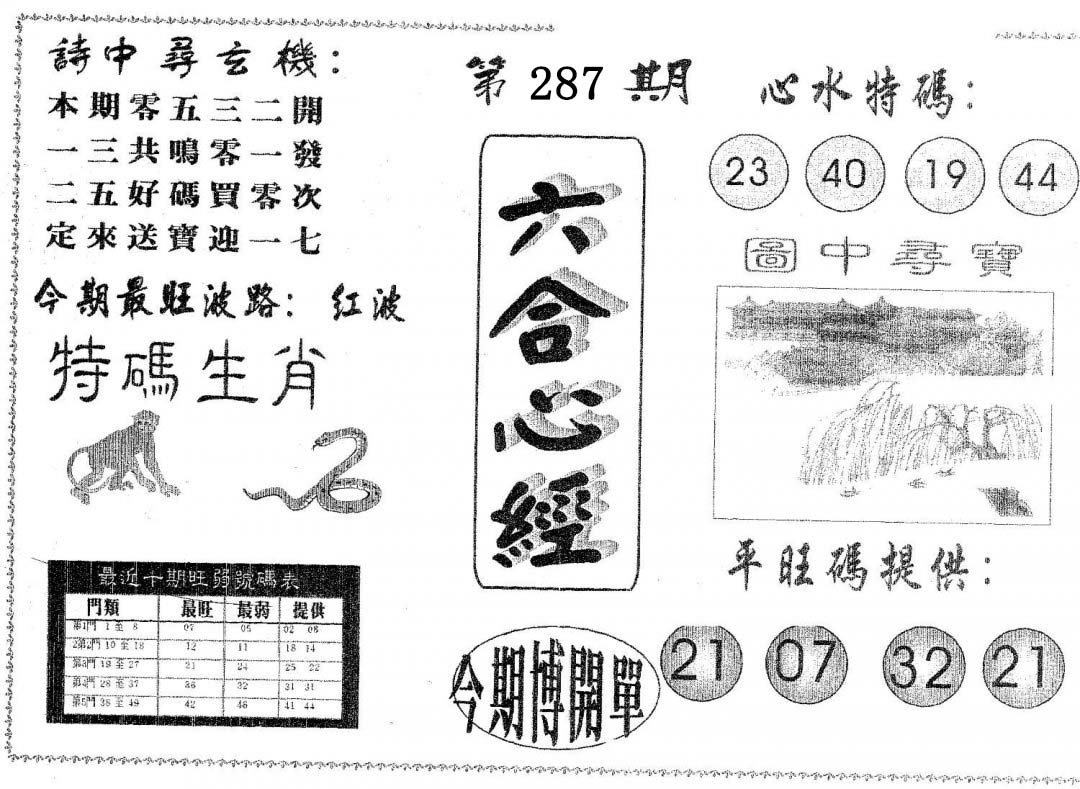 詩中尋玄機：
本期零五三二開
一三共鳴零一發
二五好碼買零次
定來送寶迎一七
今期最旺波路：紅波
特碼生肖
最近十期旺弱號碼表
門類 最旺 最弱 提供
第1門 1 至 8 07 05 02 08
第2門 10 至 18 12 11 18 14
第3門 19 至 27 21 24 25 22
第4門 28 至 37 36 32 31 31
第5門 38 至 49 42 46 41 44
第 287 期
六合心經
今期博開單
心水特碼：
23 40 19 44
圖中尋寶
平旺碼提供：
21 07 32 21